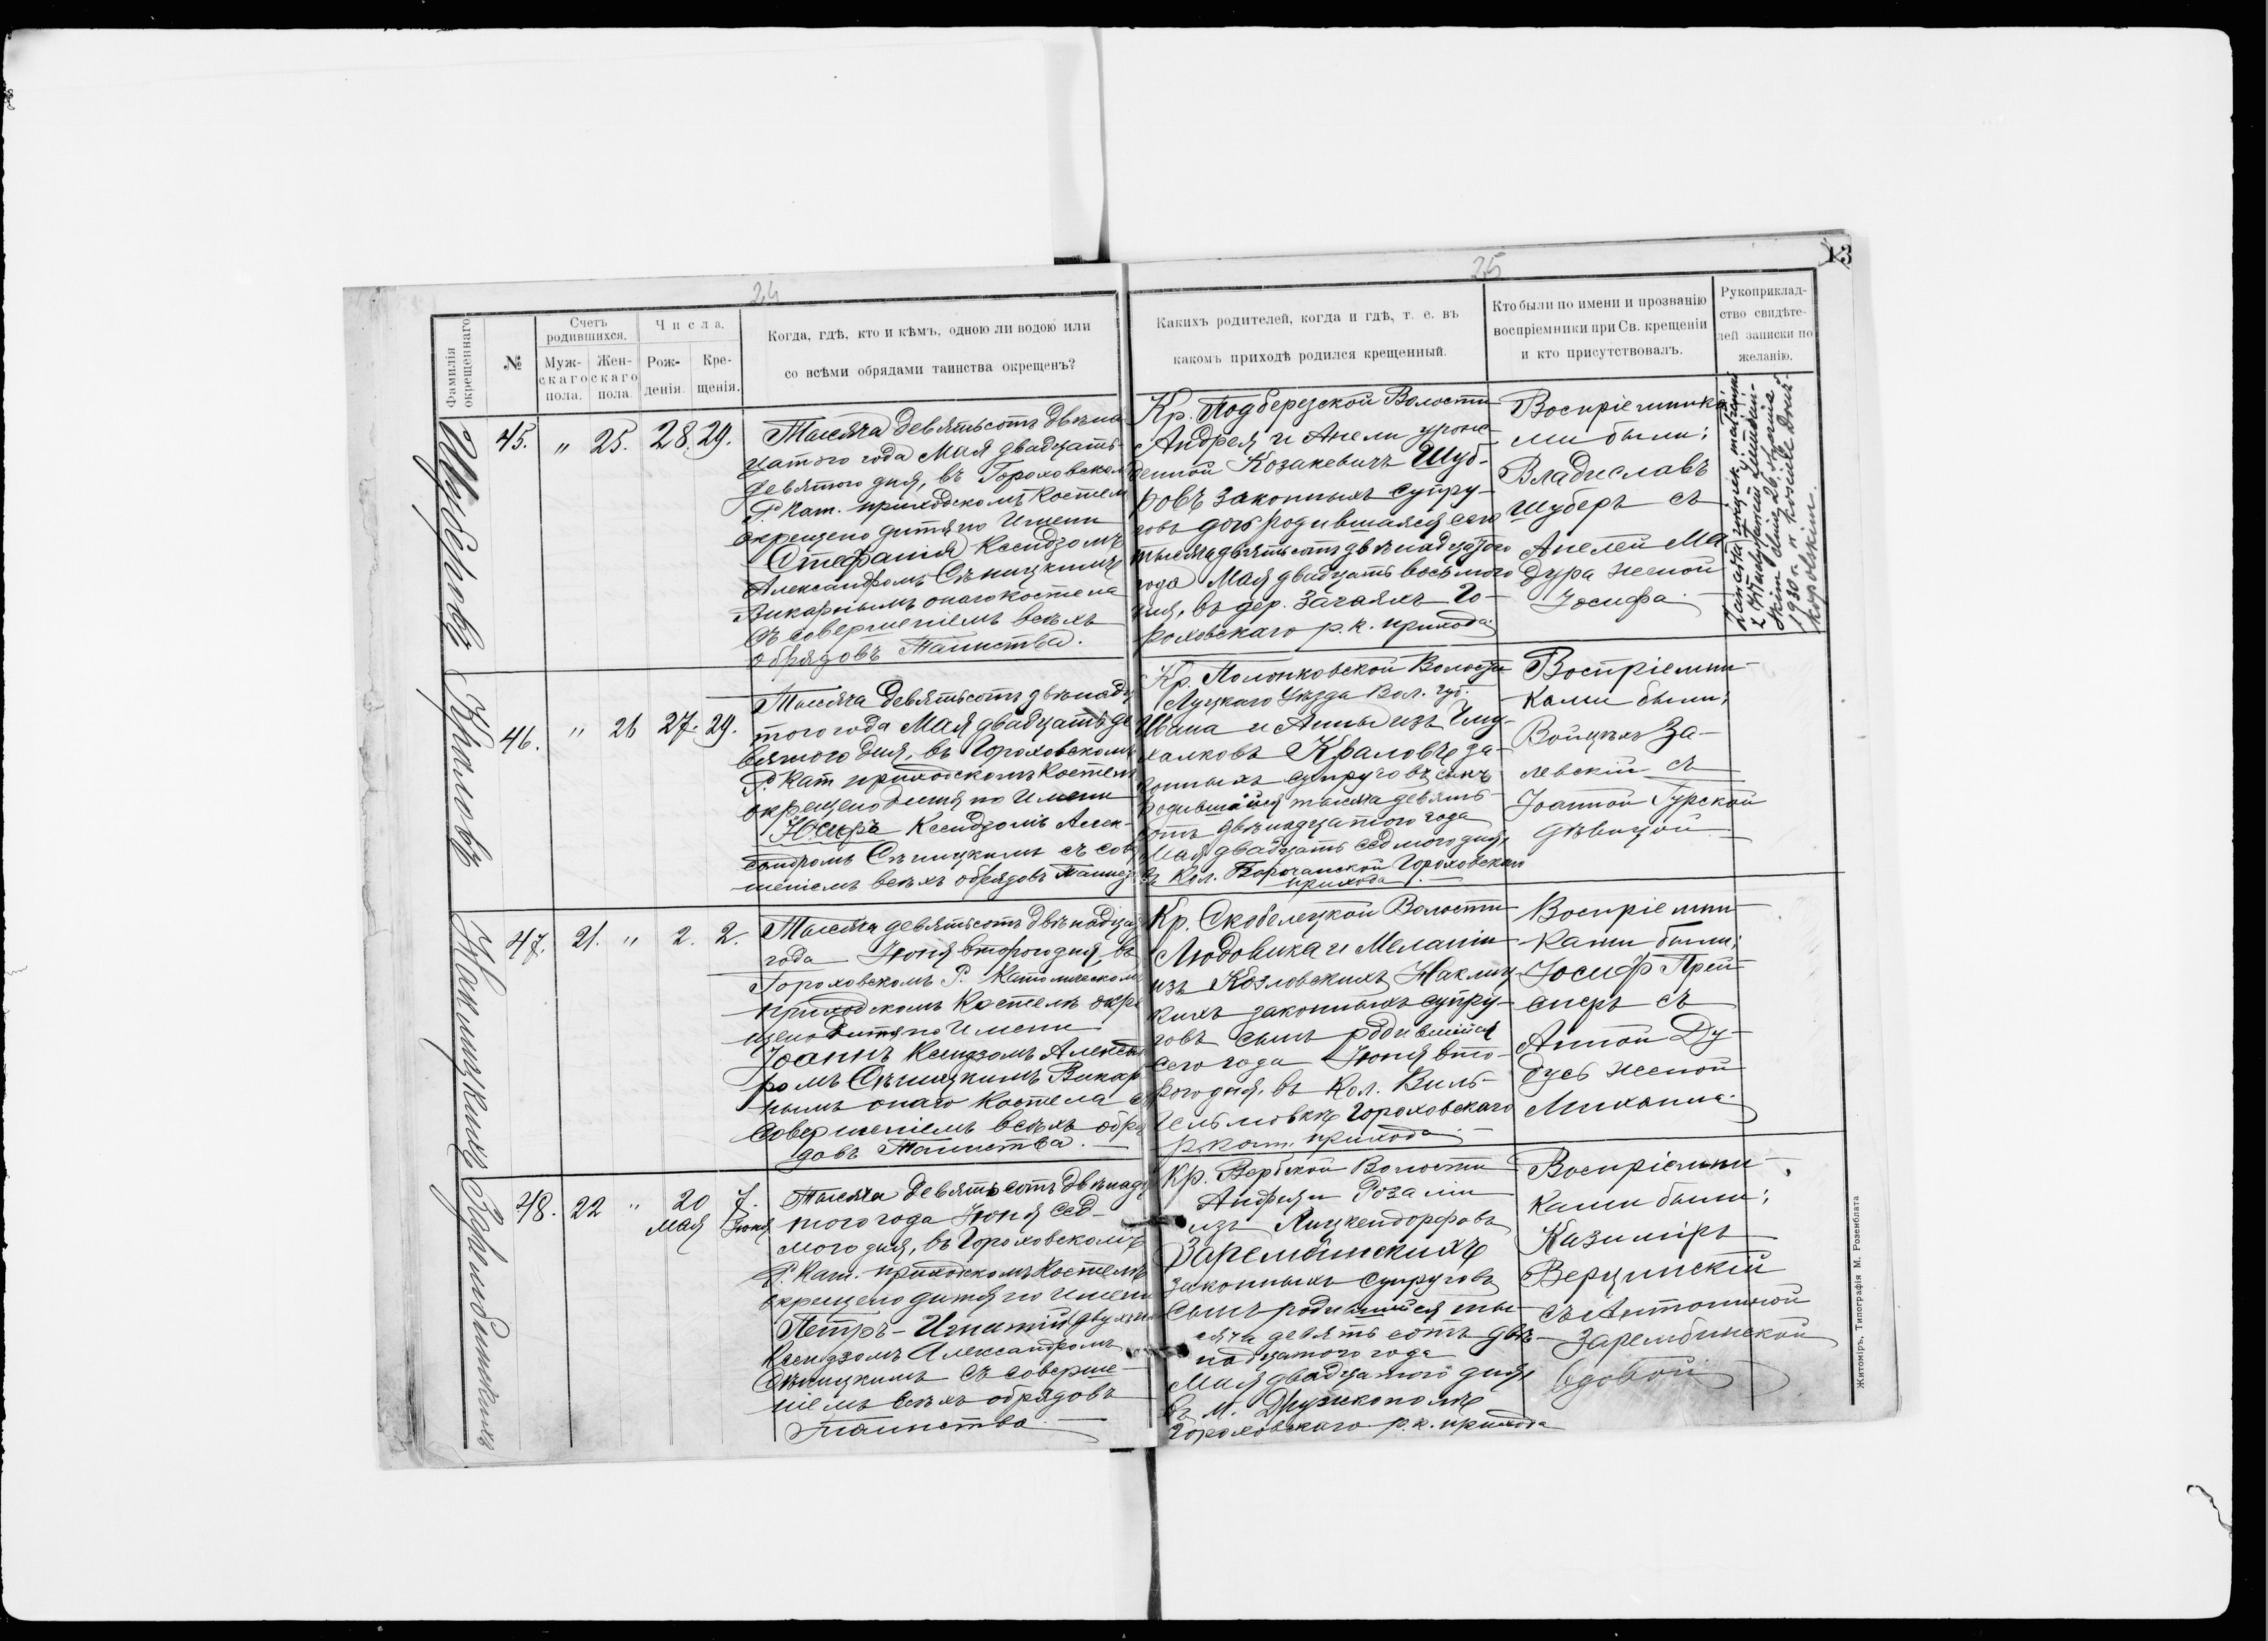 24
25
13
Фамилія окрещеннаго
№
Счетъ родившихся.
Муж-скаго пола.
Жен-скаго пола.
Числа.
Рож-денія.
Кре-щенія.
Когда, гдѣ, кто и кѣмъ, одною ли водою или
со всѣми обрядами таинства окрещенъ?
Какихъ родителей, когда и гдѣ, т. е. въ
какомъ приходѣ родился крещенный.
Кто были по имени и прозванію
воспріемники при Св. крещеніи
и кто присутствовалъ.
Рукоприклад-
ство свидѣте-
лей записки по
желанію.
Шуберовъ
45. " 25. 28. 29.
Тысяча девятьсотъ двѣна
цатого года Мая двадцать
девятого дня, въ Гороховском
Р. Кат. приходскомъ Костел
окрещено дитя по Имени
Стефанія Ксендзомъ
Александромъ Сѣницкимъ
Викарнымъ онаго костела
съ совершеніемъ всѣхъ
обрядовъ Таинства.
Кр. Подберезской Волости
Андрея и Анели урож-
денной Козакевичъ Шуб-
ровъ законныхъ супру-
говъ дочь родившаяся сего
тысяча девятьсотъ двѣнадцатого
года Мая двадцать восьмого
дня, въ дер. Загаяхъ Го-
роховскаго р. к. прихода
Воспріемника-
ми были:
Владиславъ
Шуберъ съ
Анелей Ма
дура женой
Іосифа.
Zawarła związek małżeński
skim dnia 26
1930 r. w kościele Druż-
kopolskim.
Краловъ
46. " 26 27. 29.
Тысяча девятьсотъ двѣнадц
того года Мая двадцать де
вятого дня, въ Гороховскомъ
Р. Кат приходскомъ Костел
окрещено дитя по Имени
Ксендзомъ Алек-
сандромъ Сѣницкимъ съ сов
шеніемъ всѣхъ обрядовъ Таинст
Кр. Полонковской Волости
Луцкаго Уѣзда Вол. губ.
Ивана и Анны изъ Чму-
халковъ Краловъ за-
конныхъ супруговъ сынъ
родившійся тысяча девять
сотъ двѣнадцатого года
Мая двадцать седмого дня,
въ Кол. Гороховскаго
прихода.
Воспріемни-
ками были:
Войцѣхъ За-
левскій съ
Іоанной Гурской
дѣвицой
Наклицкихъ
47. 21. " 2. 2.
Тысяча девятьсотъ двѣнадцат
года Іюня второго дня, въ
Гороховскомъ Р. Католическомъ
приходскомъ Костелѣ окре
щено дитя по Имени
Іоаннъ Ксендзомъ Алексан
ромъ Сѣницкимъ Викар
нымъ онаго Костела съ
совершеніемъ всѣхъ обря
довъ Таинства.
Кр. Скобелецкой Волости
Людовика и Меланіи
изъ Козловскихъ Наклиц
кихъ законныхъ супру-
говъ сынъ родившійся
сего года Іюня вто-
рого дня, въ Кол. Виль-
гельмовкѣ Гороховскаго
р. кат. прихода
Воспріемни-
ками были:
Іосифъ Прей-
снеръ съ
Анной Ду-
дусь женой
Михаила
Зарембинскихъ
48. 22 " 20 мая 7. Іюня
Тысяча девятьсотъ двѣнадц
того года Іюня сед-
мого дня, въ Гороховскомъ
Р. Кат. приходскомъ Костелѣ
окрещено дитя по имени
Петръ-Игнатій
Ксендзомъ Александромъ
Сѣницкимъ съ соверше-
ніемъ всѣхъ обрядовъ
Таинства.
Кр. Вербской Волости
Андрея и Розаліи
изъ Лицкендорфовъ
Зарембинскихъ
законныхъ супруговъ
сынъ родившійся ты-
сяча девятьсотъ двѣ-
надцатого года
Мая двадцатого дня
въ м. Дружкополѣ
Гороховскаго р. к. прихода
Воспріемни-
ками были:
Казиміръ
Верцинскій
съ Антониной
Зарембинской
вдовой
Житоміръ, Типографія М. Розенблата